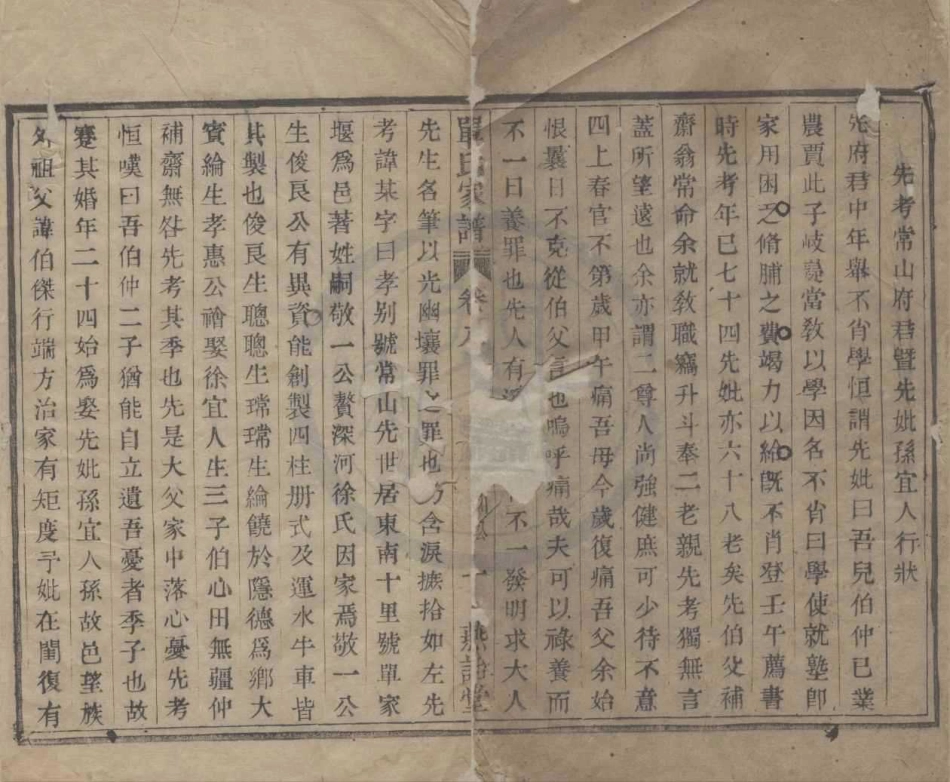 先考常山府君暨先妣孫宜人行狀
先府君中年舉不肖學恒謂先妣曰吾兒伯仲已業
農賈此子岐嶷當敎以學因名不肖曰學使就塾卽
家用困乏脩脯之費竭力以給旣不肖登壬午薦書
時先考年已七十四先妣亦六十八老矣先伯父補
齋翁常命余就敎職竊升斗奉二老親先考獨無言
蓋所望遠也余亦謂二尊人尚強健庶可少待不意
四上春官不第歲甲午痛吾母今歲復痛吾父余始
恨曩日不克從伯父言也嗚呼痛哉夫可以祿養而
不一日養罪也先人有 不一發明求大人
單氏家譜 卷 燕詒堂
先生名筆以光幽壤罪之罪也 含淚摭拾如左先
考諱某字曰孝別號常山先世居東南十里號單家
堰爲邑著姓嗣敬一公贅深河徐氏因家焉敬一公
生俊艮公有異資能創製四柱册式及運水牛車皆
其製也俊艮生聰聰生瑺瑺生綸饒於隱德爲鄉大
賓綸生孝惠公禬娶徐宜人生三子伯心田無疆仲
補齋無咎先考其季也先是大父家中落心憂先考
恒嘆曰吾伯仲二子猶能自立遺吾憂者季子也故
蹇其婚年二十四始爲娶先妣孫宜人孫故邑望族
外祖父諱伯傑行端方治家有矩度予妣在閨復有